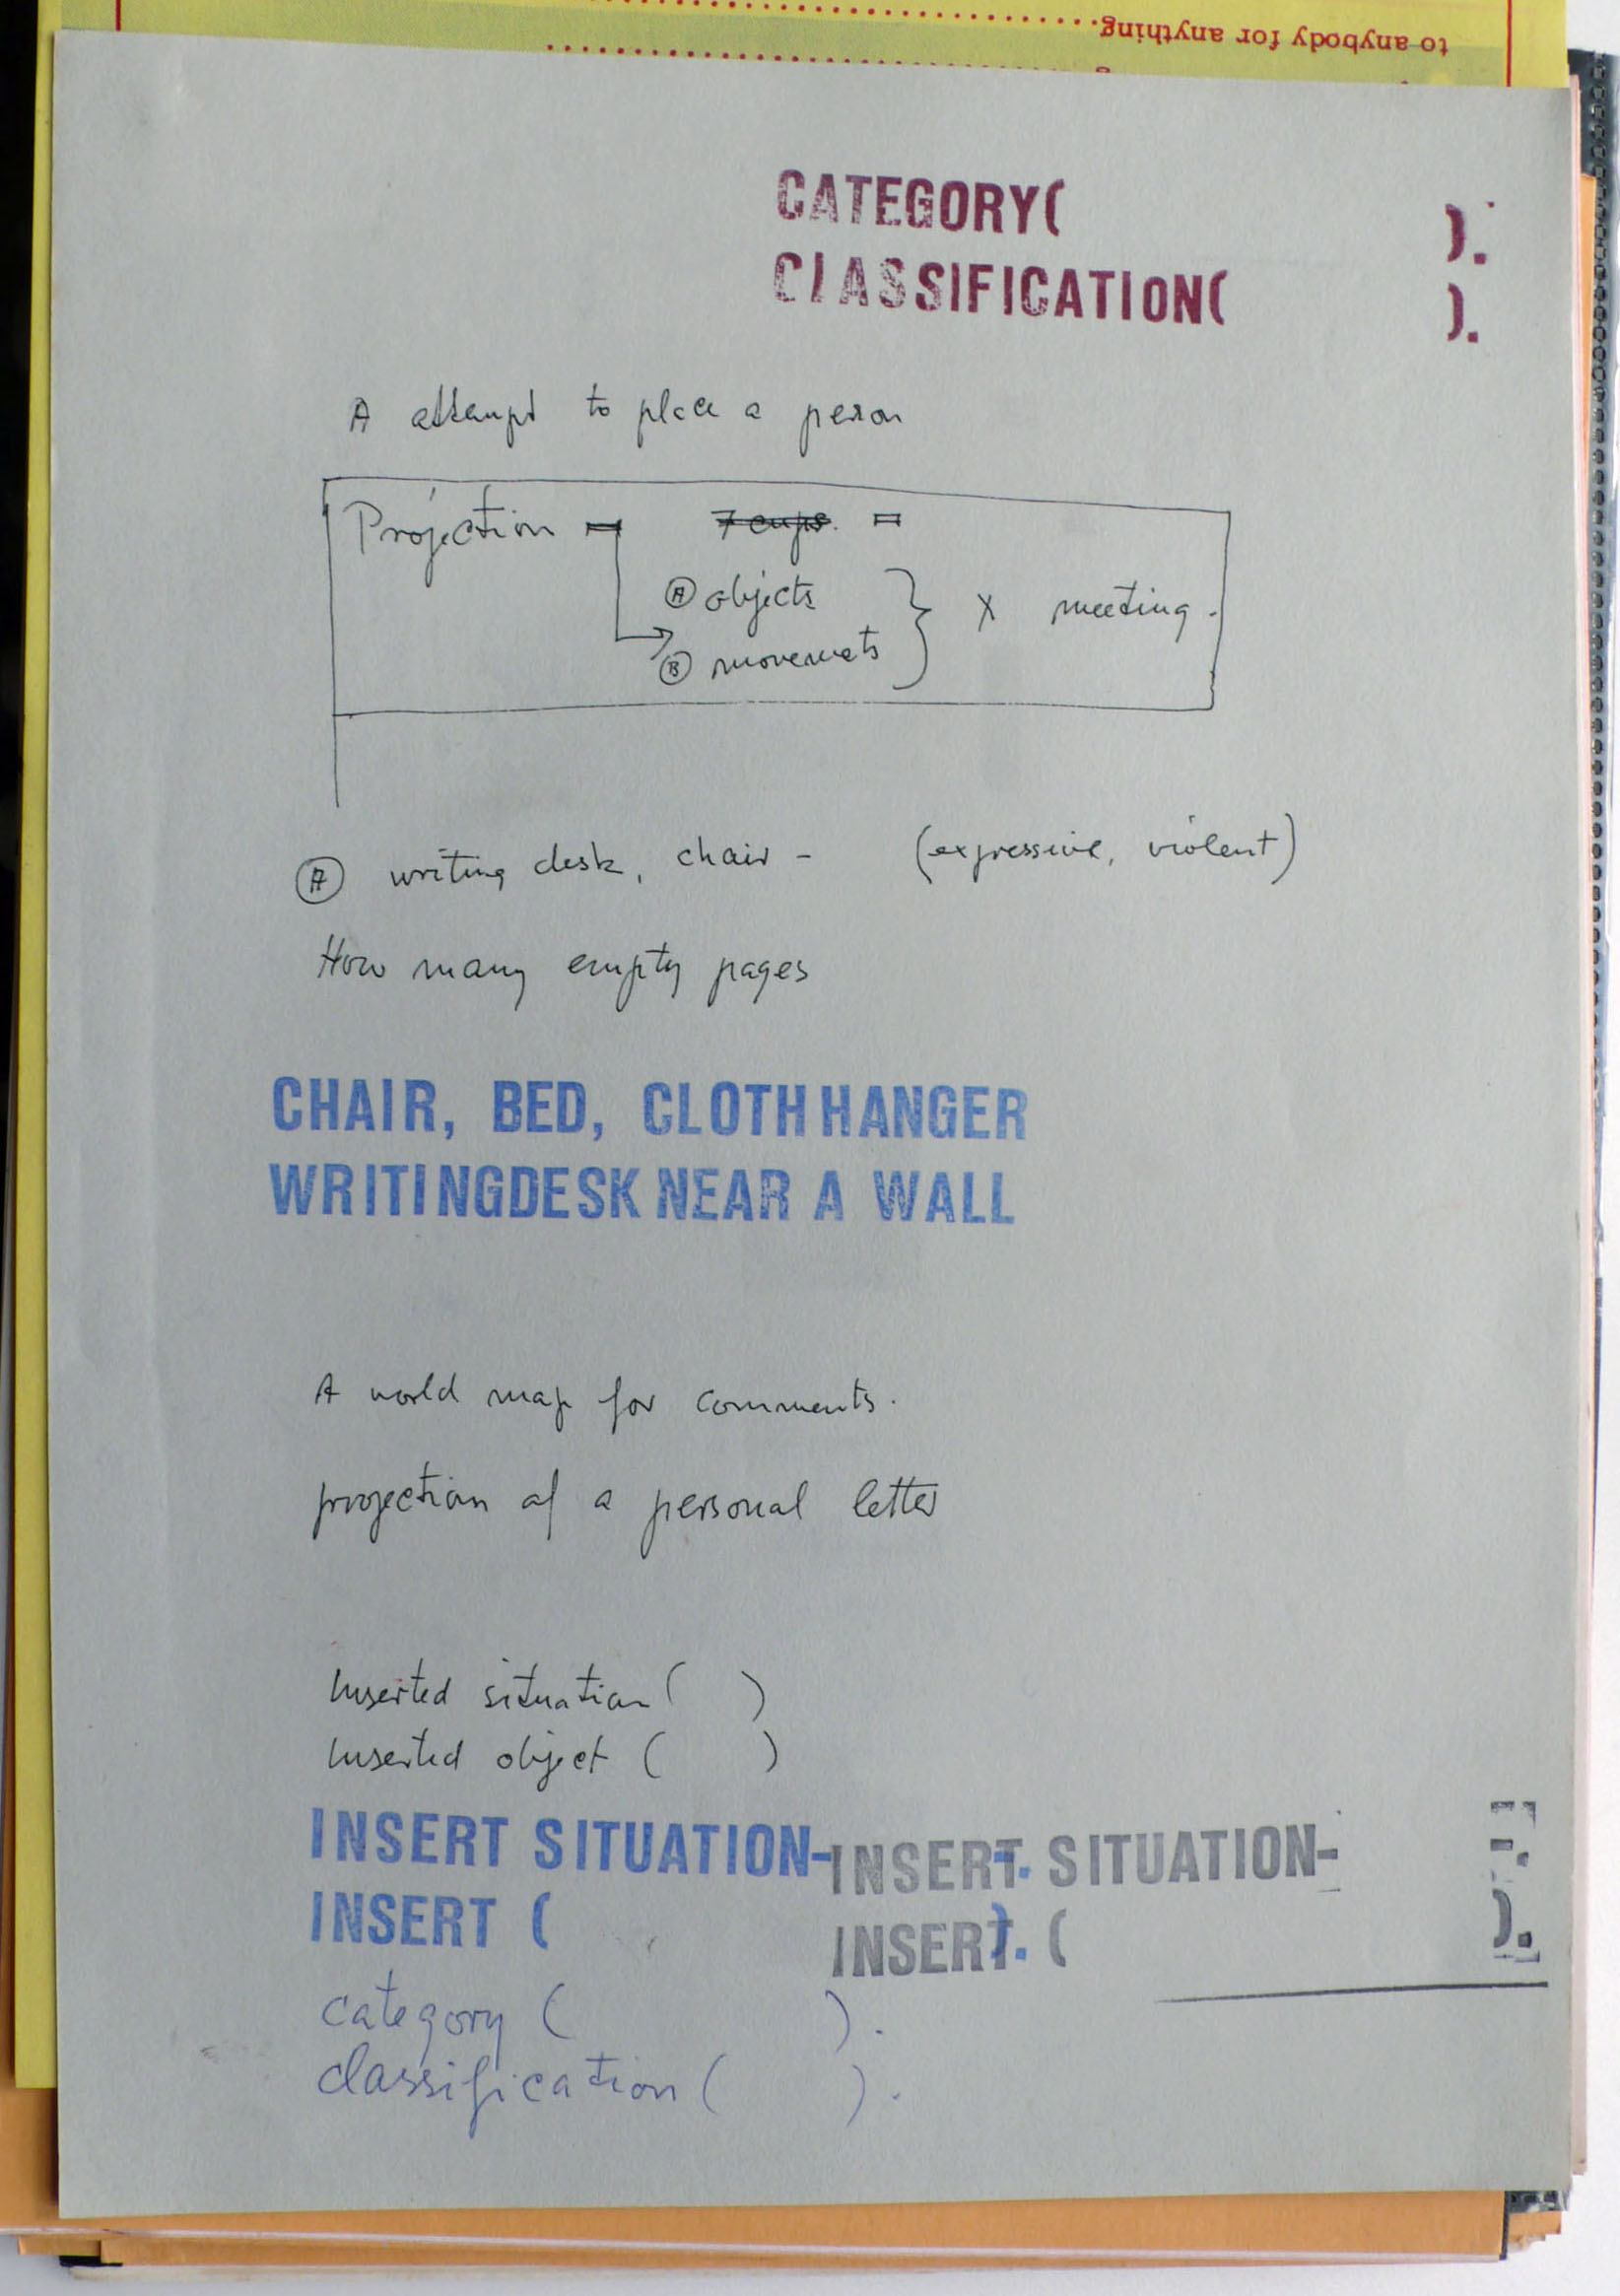 to anybody for anything
CATEGORY( ).
CLASSIFICATION( ).
A attempt to place a person
Projection = 7 cups. =
Ⓐ objects
Ⓑ movemets } X meeting.
Ⓐ writing desk, chair - (expressive, violent)
How many empty pages
CHAIR, BED, CLOTHHANGER
WRITINGDESK NEAR A WALL
A world map for comments.
projection of a personal letter
Inserted situation ( )
Inserted object ( )
INSERT SITUATION- INSERT SITUATION-
INSERT ( ). INSERT ( ).
category ( ).
classification ( ).